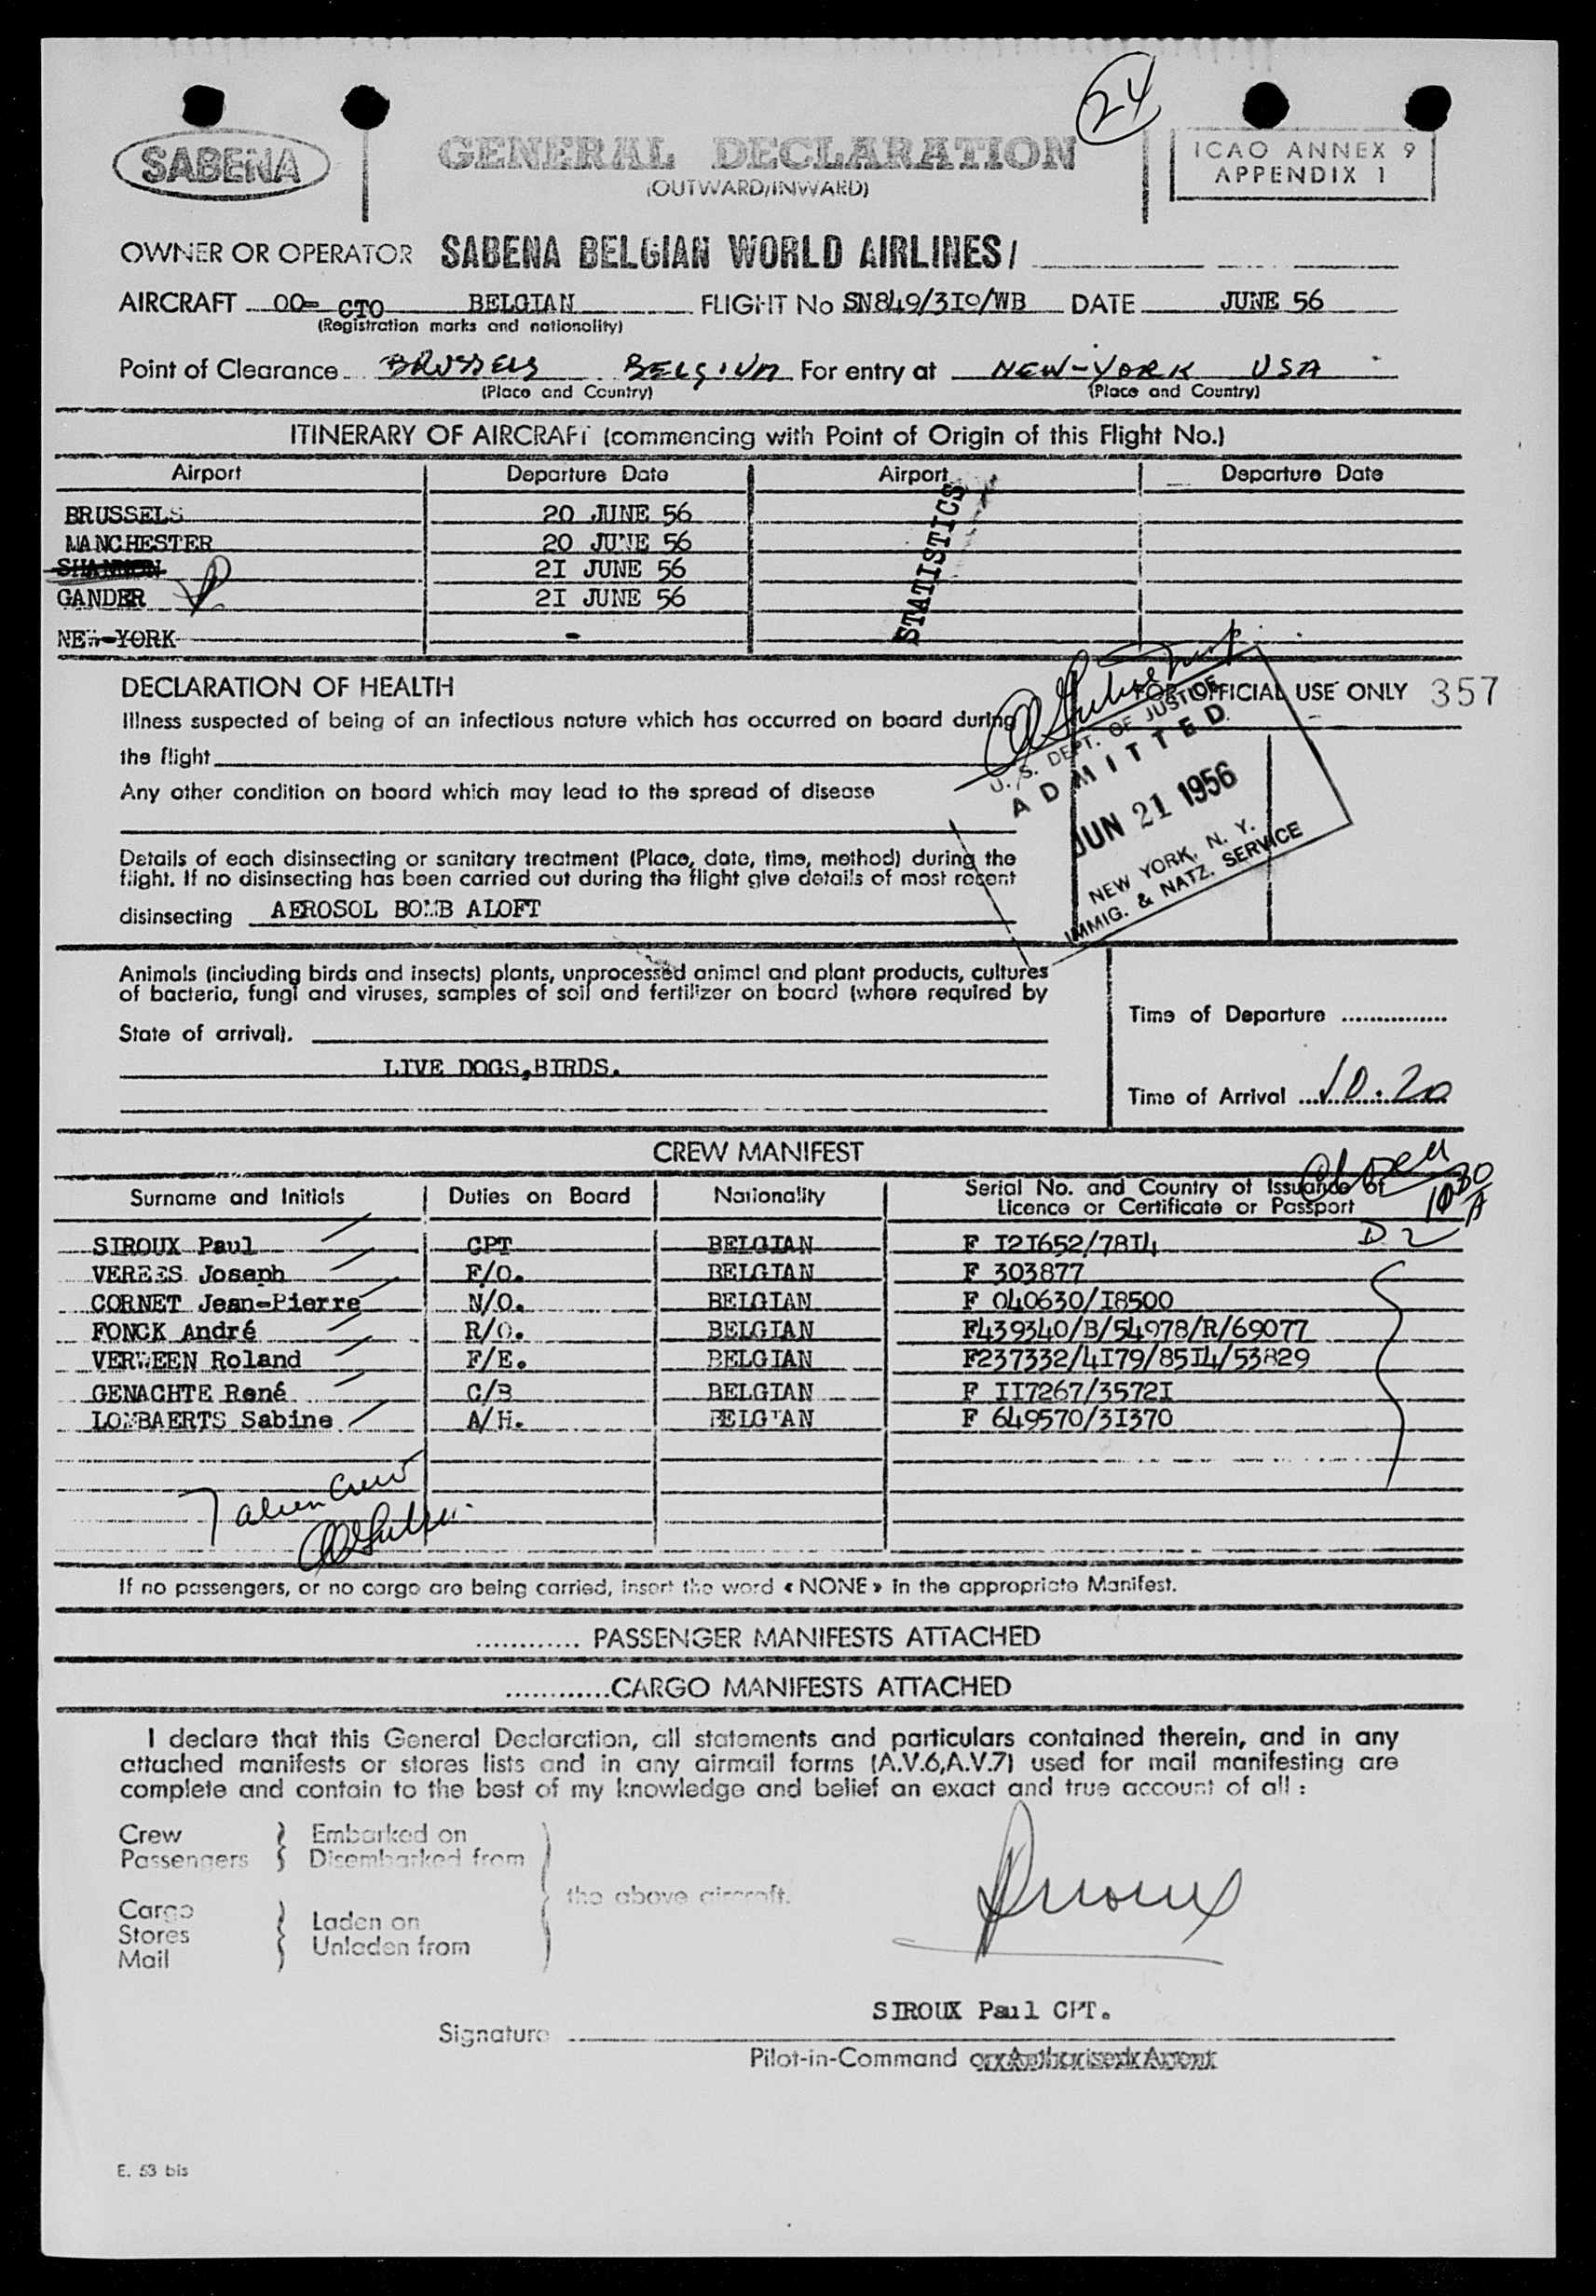 24
SABENA
GENERAL DECLARATION
(OUTWARD/INWARD)
ICAO ANNEX 9
APPENDIX 1
OWNER OR OPERATOR SABENA BELGIAN WORLD AIRLINES/
AIRCRAFT OO= CTO BELGIAN FLIGHT No SN849/3I0/WB DATE JUNE 56
(Registration marks and nationality)
Point of Clearance BRUSSELS BELGIUM For entry at NEW-YORK USA
(Place and Country) (Place and Country)
ITINERARY OF AIRCRAFT (commencing with Point of Origin of this Flight No.)
Airport Departure Date Airport Departure Date
BRUSSELS 20 JUNE 56
MANCHESTER 20 JUNE 56
SHANNON 2I JUNE 56
GANDER 2I JUNE 56
NEW-YORK -
STATISTICS
DECLARATION OF HEALTH
FOR OFFICIAL USE ONLY 357
Illness suspected of being of an infectious nature which has occurred on board during
the flight
Any other condition on board which may lead to the spread of disease
U. S. DEPT. OF JUSTICE
ADMITTED
JUN 21 1956
NEW YORK, N. Y.
IMMIG. & NATZ. SERVICE
Details of each disinsecting or sanitary treatment (Place, date, time, method) during the
flight. If no disinsecting has been carried out during the flight give details of most recent
disinsecting AEROSOL BOMB ALOFT
Animals (including birds and insects) plants, unprocessed animal and plant products, cultures
of bacteria, fungi and viruses, samples of soil and fertilizer on board (where required by
State of arrival).
LIVE DOGS,BIRDS.
Time of Departure ...............
Time of Arrival 10.20
CREW MANIFEST
Surname and Initials Duties on Board Nationality Serial No. and Country of Issuance of
Licence or Certificate or Passport
1030/A
D2
SIROUX Paul CPT BELGIAN F I2I652/78I4
VEREES Joseph F/O. BELGIAN F 303877
CORNET Jean-Pierre N/O. BELGIAN F 040630/I8500
FONCK André R/O. BELGIAN F439340/B/54978/R/69077
VERWEEN Roland F/E. BELGIAN F237332/4I79/85I4/53829
GENACHTE René C/B BELGIAN F II7267/3572I
LOMBAERTS Sabine A/H. BELGIAN F 649570/3I370
7 alien Crew
If no passengers, or no cargo are being carried, insert the word « NONE » in the appropriate Manifest.
............ PASSENGER MANIFESTS ATTACHED
............CARGO MANIFESTS ATTACHED
I declare that this General Declaration, all statements and particulars contained therein, and in any
attached manifests or stores lists and in any airmail forms (A.V.6,A.V.7) used for mail manifesting are
complete and contain to the best of my knowledge and belief an exact and true account of all :
Crew Embarked on
Passengers Disembarked from
the above aircraft.
Cargo
Stores Laden on
Mail Unladen from
SIROUX Paul CPT.
Signature
Pilot-in-Command or Authorised Agent
E. 53 bis